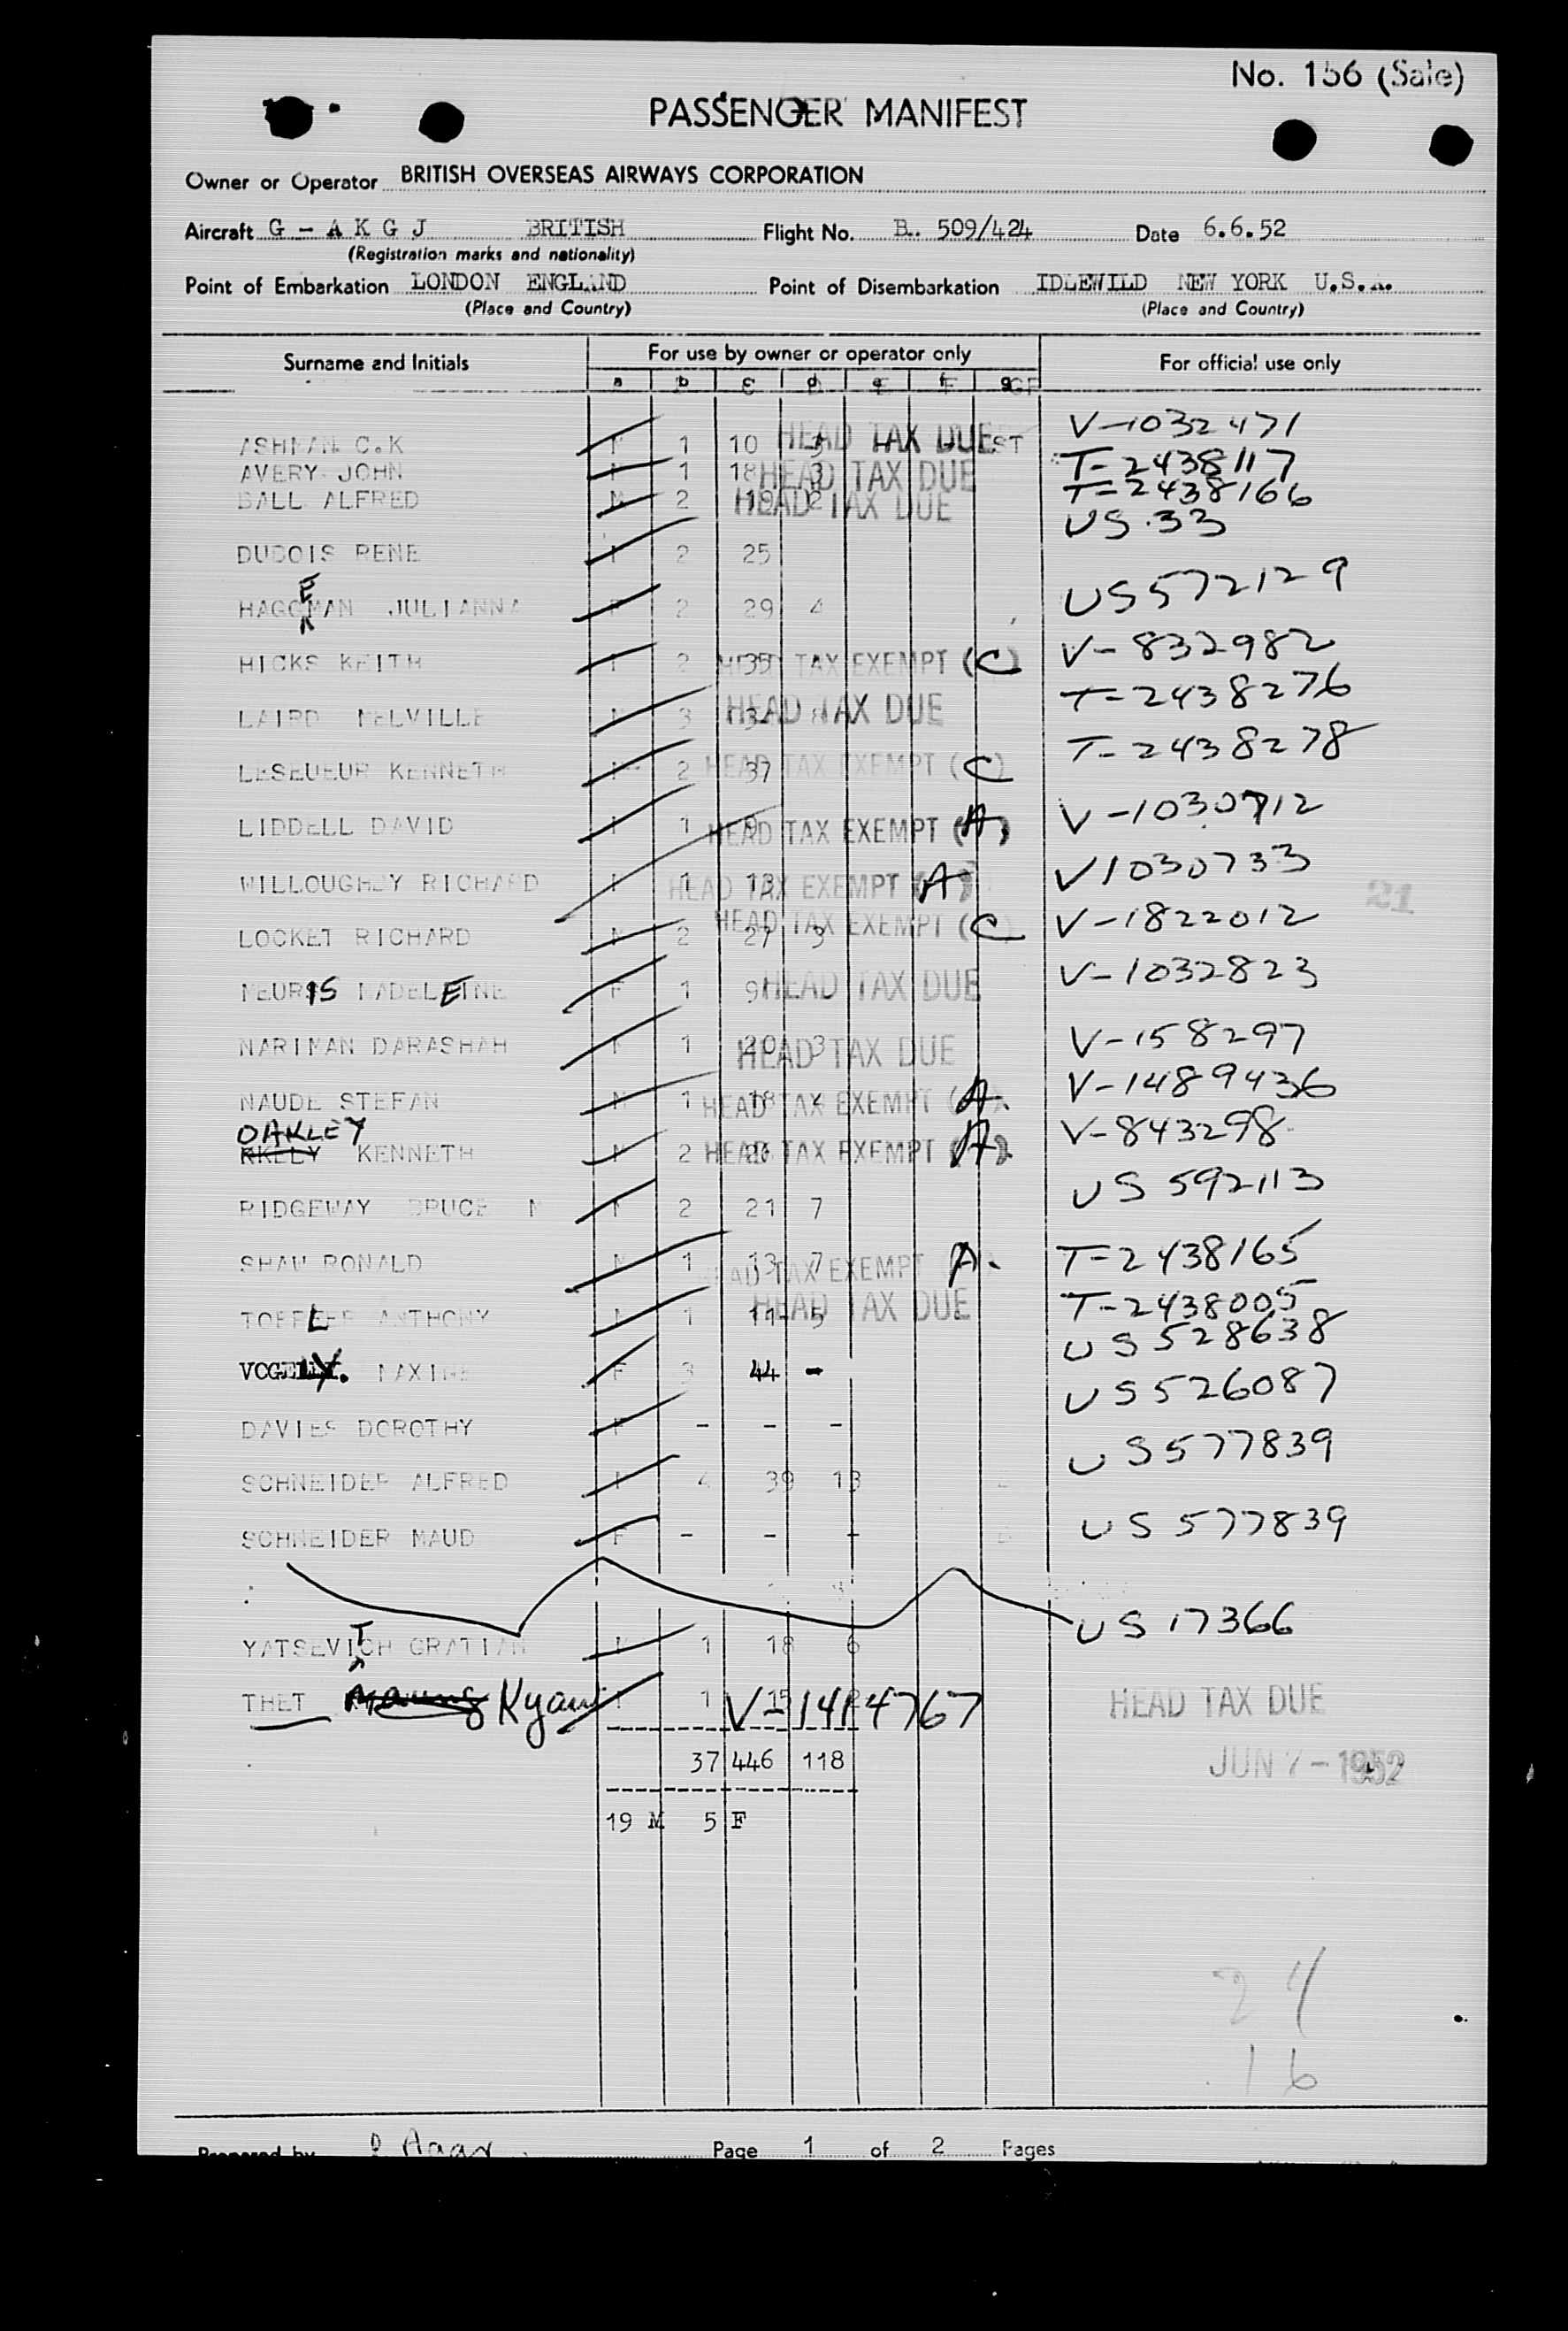 No. 156 (Sale)
PASSENGER MANIFEST
Owner or Operator BRITISH OVERSEAS AIRWAYS CORPORATION
Aircraft G - A K G J BRITISH Flight No. B. 509/424 Date 6.6.52
(Registration marks and nationality)
Point of Embarkation LONDON ENGLAND Point of Disembarkation IDLEWILD NEW YORK U.S.A.
(Place and Country) (Place and Country)
Surname and Initials For use by owner or operator only For official use only
a b c d e f g
ASHMAN C.K M 1 10 3 HEAD TAX DUE V-1032471
AVERY JOHN M 1 18 3 HEAD TAX DUE T-2438117
BALL ALFRED M 2 18 2 HEAD TAX DUE T-2438166
US 33
DUBOIS RENE M 2 25
HAGGEMAN JULIANNA F 2 29 4 US 572129
HICKS KEITH M 2 35 HEAD TAX EXEMPT (C) V-832982
LAIRD MELVILLE M 3 HEAD TAX DUE T-2438276
LESEUEUR KENNETH M 2 37 HEAD TAX EXEMPT (C) T-2438278
LIDDELL DAVID M 1 HEAD TAX EXEMPT (A) V-1030712
WILLOUGHBY RICHARD M 1 13 HEAD TAX EXEMPT (A) V1030733
21
LOCKET RICHARD M 2 27 3 HEAD TAX EXEMPT (C) V-1822012
MEURIS MADELEINE F 1 9 HEAD TAX DUE V-1032823
NARIMAN DARASHAH M 1 20 3 HEAD TAX DUE V-158297
NAUDE STEFAN M 1 18 HEAD TAX EXEMPT (A) V-1489436
OAKLEY
KENNETH M 2 HEAD TAX EXEMPT (A) V-843298
RIDGEWAY BRUCE M M 2 21 7 US 592113
SHAW RONALD M 1 13 7 HEAD TAX EXEMPT A. T-2438165
TOEFLER ANTHONY M 1 11 5 HEAD TAX DUE T-2438005
US 528638
VOGELY. MAXINE F 3 44 - US 526087
DAVIES DOROTHY F - - - US 577839
SCHNEIDER ALFRED M 4 39 13
SCHNEIDER MAUD F - - - US 577839
YATSEVITCH GRATIAN M 1 18 6 US 17366
THET Maung Kyaw M 1 15 2 V-1414767 HEAD TAX DUE
37 446 118 JUN 7-1952
19 M 5 F
24
16
Prepared by Page 1 of 2 Pages